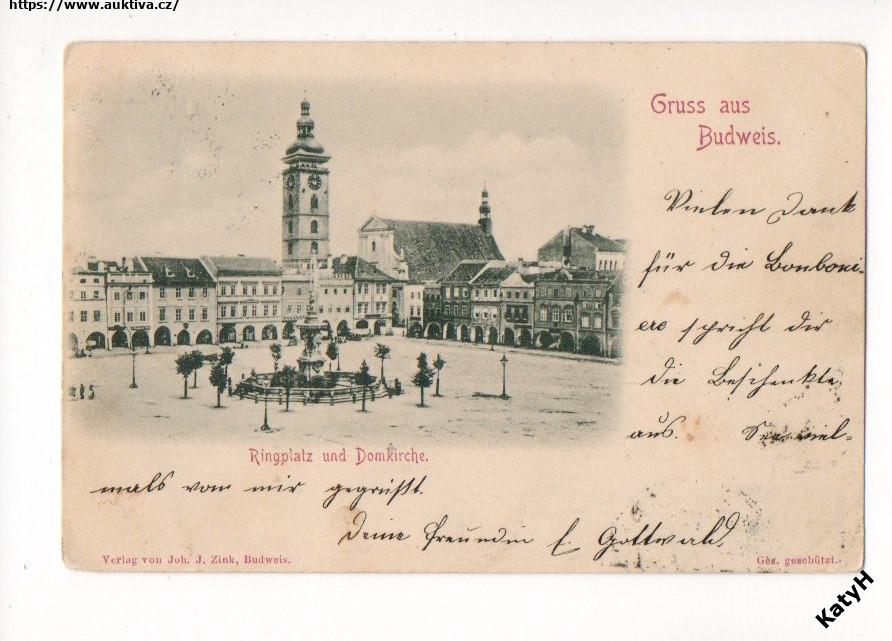 https://www.auktiva.cz/
Gruss aus
Budweis.
Vielen Dank
für die Bonboni-
ere spricht dir
die Beschenkte
aus. Sei viel-
Ringplatz und Domkirche.
mals von mir gegrüßt.
Deine Freundin E. Gottwald.
Verlag von Joh. J. Zink, Budweis.
Ges. geschützt.
KatyH